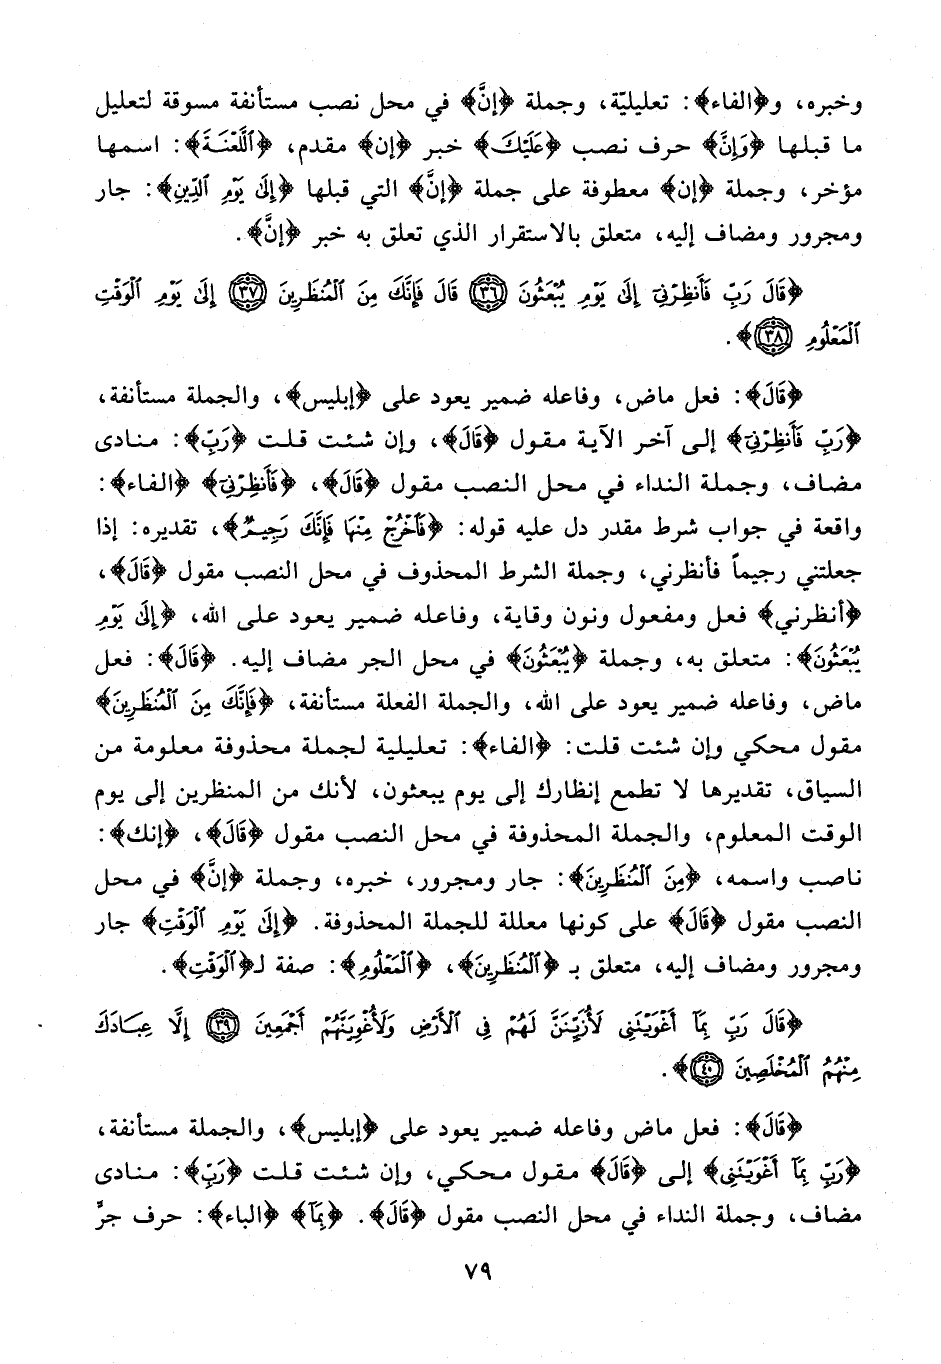 وخبره، و﴿الفاء﴾: تعليليّة، وجملة ﴿إنَّ﴾ في محل نصب مستأنفة مسوقة لتعليل
ما قبلها ﴿وَإِنَّ﴾ حرف نصب ﴿عَلَيْكَ﴾ خبر ﴿إن﴾ مقدم، ﴿ٱللَّعْنَةَ﴾: اسمها
مؤخر، وجملة ﴿إن﴾ معطوفة على جملة ﴿إنَّ﴾ التي قبلها ﴿إِلَىٰ يَوْمِ ٱلدِّينِ﴾: جار
ومجرور ومضاف إليه، متعلق بالاستقرار الذي تعلق به خبر ﴿إنَّ﴾.
﴿قَالَ رَبِّ فَأَنظِرْنِىٓ إِلَىٰ يَوْمِ يُبْعَثُونَ ٣٦ قَالَ فَإِنَّكَ مِنَ ٱلْمُنظَرِينَ ٣٧ إِلَىٰ يَوْمِ ٱلْوَقْتِ
ٱلْمَعْلُومِ ٣٨﴾.
﴿قَالَ﴾: فعل ماض، وفاعله ضمير يعود على ﴿إبليس﴾، والجملة مستأنفة،
﴿رَبِّ فَأَنظِرْنِىٓ﴾ إلى آخر الآية مقول ﴿قَالَ﴾، وإن شئت قلت ﴿رَبِّ﴾: منادى
مضاف، وجملة النداء في محل النصب مقول ﴿قَالَ﴾، ﴿فَأَنظِرْنِىٓ﴾ ﴿الفاء﴾:
واقعة في جواب شرط مقدر دل عليه قوله: ﴿فَٱخْرُجْ مِنْهَا فَإِنَّكَ رَجِيمٌ﴾، تقديره: إذا
جعلتني رجيماً فأنظرني، وجملة الشرط المحذوف في محل النصب مقول ﴿قَالَ﴾،
﴿أنظرني﴾ فعل ومفعول ونون وقاية، وفاعله ضمير يعود على الله، ﴿إِلَىٰ يَوْمِ
يُبْعَثُونَ﴾: متعلق به، وجملة ﴿يُبْعَثُونَ﴾ في محل الجر مضاف إليه. ﴿قَالَ﴾: فعل
ماض، وفاعله ضمير يعود على الله، والجملة الفعلة مستأنفة، ﴿فَإِنَّكَ مِنَ ٱلْمُنظَرِينَ﴾
مقول محكي وإن شئت قلت: ﴿الفاء﴾: تعليلية لجملة محذوفة معلومة من
السياق، تقديرها لا تطمع إنظارك إلى يوم يبعثون، لأنك من المنظرين إلى يوم
الوقت المعلوم، والجملة المحذوفة في محل النصب مقول ﴿قَالَ﴾، ﴿إنك﴾:
ناصب واسمه، ﴿مِنَ ٱلْمُنظَرِينَ﴾: جار ومجرور، خبره، وجملة ﴿إنَّ﴾ في محل
النصب مقول ﴿قَالَ﴾ على كونها معللة للجملة المحذوفة. ﴿إِلَىٰ يَوْمِ ٱلْوَقْتِ﴾ جار
ومجرور ومضاف إليه، متعلق بـ ﴿ٱلْمُنظَرِينَ﴾، ﴿ٱلْمَعْلُومِ﴾: صفة لـ﴿ٱلْوَقْتِ﴾.
﴿قَالَ رَبِّ بِمَآ أَغْوَيْتَنِى لَأُزَيِّنَنَّ لَهُمْ فِى ٱلْأَرْضِ وَلَأُغْوِيَنَّهُمْ أَجْمَعِينَ ٣٩ إِلَّا عِبَادَكَ
مِنْهُمُ ٱلْمُخْلَصِينَ ٤٠﴾.
﴿قَالَ﴾: فعل ماض وفاعله ضمير يعود على ﴿إبليس﴾، والجملة مستأنفة،
﴿رَبِّ بِمَآ أَغْوَيْتَنِى﴾ إلى ﴿قَالَ﴾ مقول محكي، وإن شئت قلت ﴿رَبِّ﴾: منادى
مضاف، وجملة النداء في محل النصب مقول ﴿قَالَ﴾. ﴿بِمَآ﴾ ﴿الباء﴾: حرف جرٍّ
٧٩